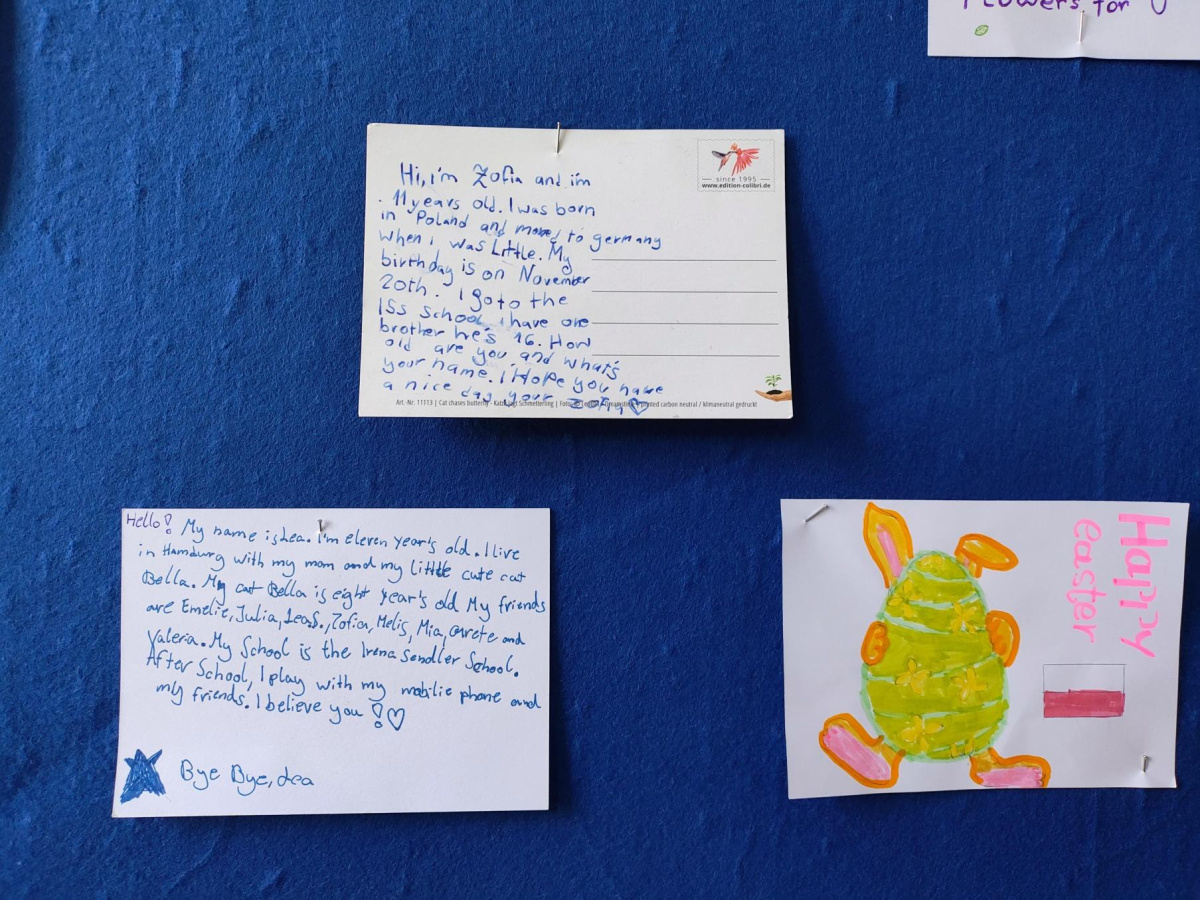 Flowers for U
Hi, i'm Zofia and i'm
11 years old. I was born
in Poland and moved to germany
when i was Little. My
birthday is on November
20th. I go to the
ISS School i have one
brother he's 16. How
old are you and what's
your name. i Hope you have
a nice day your Zofia
since 1995
www.edition-colibri.de
Art.-Nr. 11113 | Cat chases butterfly - Katze jagt Schmetterling | printed carbon neutral / klimaneutral gedruckt
Hello! My name is Lea. I'm eleven year's old. I live
in Hamburg with my mom and my little cute cat
Bella. My cat Bella is eight year's old My friends
are Emelie, Julia, Lea S., Zofia, Melis, Mia, Grete and
Valeria. My School is the Irena Sendler School.
After School, I play with my mobilie phone and
my friends. I believe you!
Bye Bye, Lea
Happy
easter